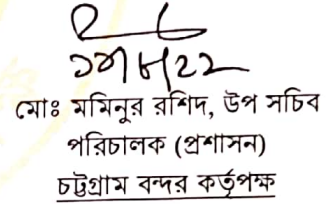 ২৭/৮/২২
মোঃ মমিনুর রশিদ, উপ সচিব
পরিচালক (প্রশাসন)
চট্টগ্রাম বন্দর কর্তৃপক্ষ